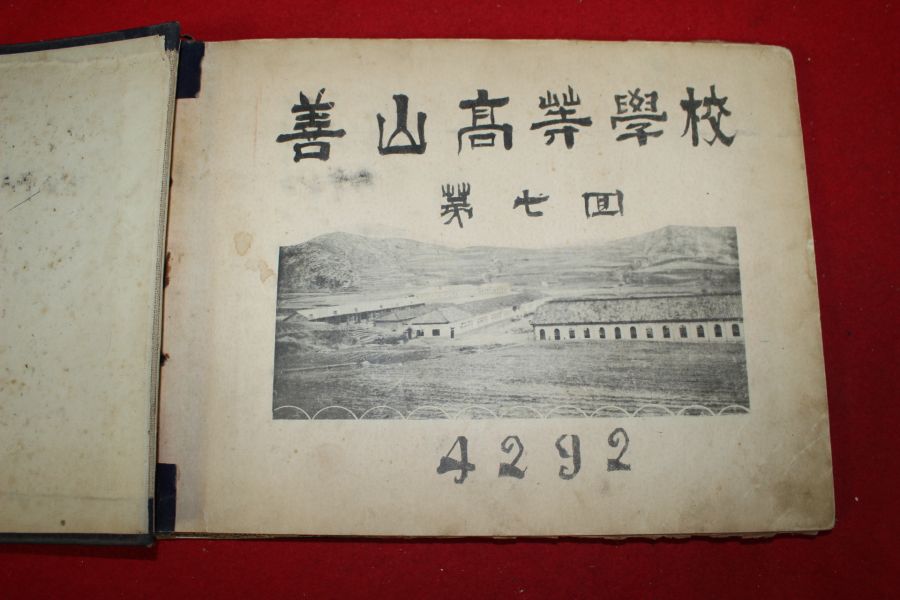 善山高等學校
第七回
4292